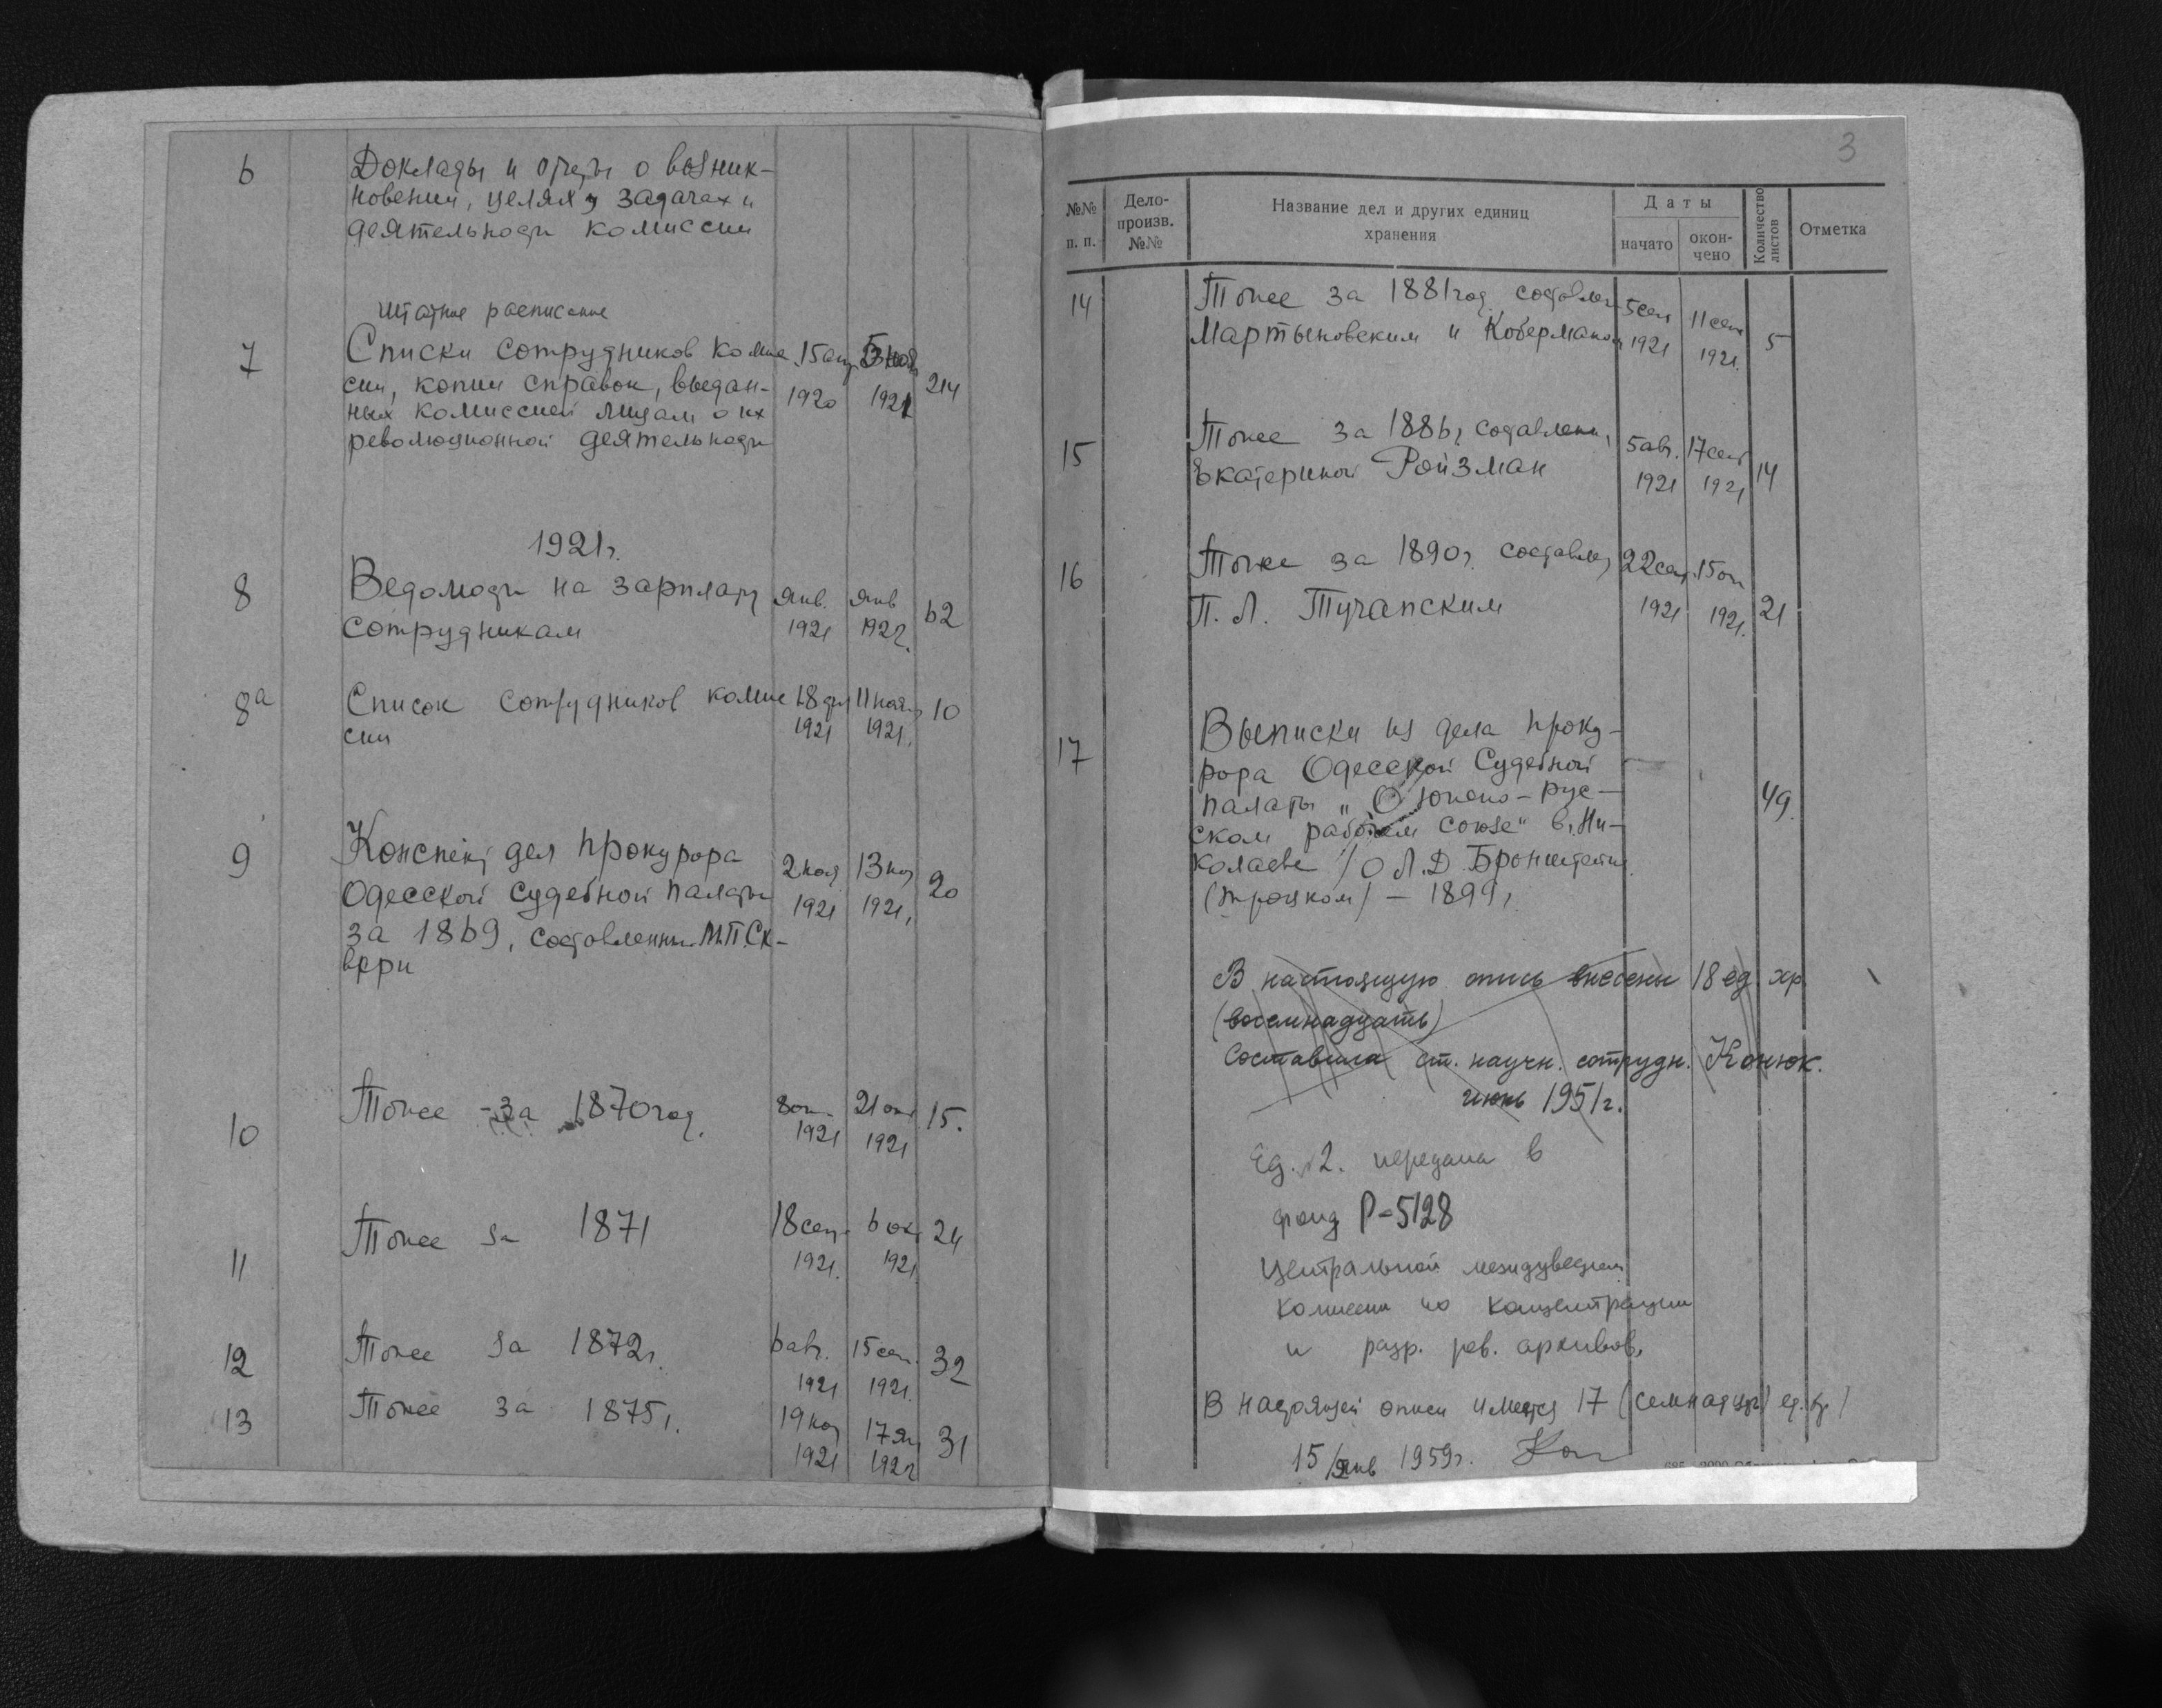 6 Доклады и отчеты о возник-
новении, целях, задачах и
деятельности комиссии
Штатное расписание
7 Списки сотрудников комис 15
сии, копии справок, выдан- 1920 1921 214
ных комиссией лицам о их
революционной деятельности
1921г.
8 Ведомости на зарплату янв. янв 62
сотрудникам 1921 1922.
8а Список сотрудников комис 18 11 ноя 10
сии 1921 1921.
9 Конспект дел прокурора 2 ноя 13 ноя 20
Одесской Судебной палаты 1921 1921.
за 1869, составленный М.П.
10 Тоже за 1870 год. 8 ок. 21 окт 15.
1921 1921
11 Тоже за 1871 18 сен. 6 ок. 24
1921. 1921
12 Тоже за 1872г. 6 авг. 15 сен. 32
1921 1921.
13 Тоже за 1875г. 19 ноя 17 ян 31
1921 1922
3
№№ п. п.
Дело-произв. №№
Название дел и других единиц
хранения
Даты
начато
окон-чено
Количество листов
Отметка
14 Тоже за 1881 год, составлен 5 сен 11 сен 5
Мартыновским и Коберманом 1921 1921.
15 Тоже за 1886г составлен. 5 авг. 17 сен 14
Екатериной Ройзман 1921 1921
16 Тоже за 1890г. составлен 22 сен. 15 ок 21
П. Л. Тучапским 1921 1921.
17 Выписки из дела проку-
рора Одесской Судебной
палаты „О Южно-рус- 49.
ском рабочем союзе" в г. Ни-
колаеве /о Л. Д Бронштейне
(Троцком) – 1899г.
В настоящую опись внесены 18 ед. хр.
(восемнадцать)
Составила ст. научн. сотрудн. Конюк.
июнь 1951г.
Ед. 12. передана в
фонд Р-5128
Центральной междуведом.
комиссии по концентрации
и разр. рев. архивов.
В настоящей описи имеется 17 (семнадцать) ед. хр.)
15/янв 1959г.